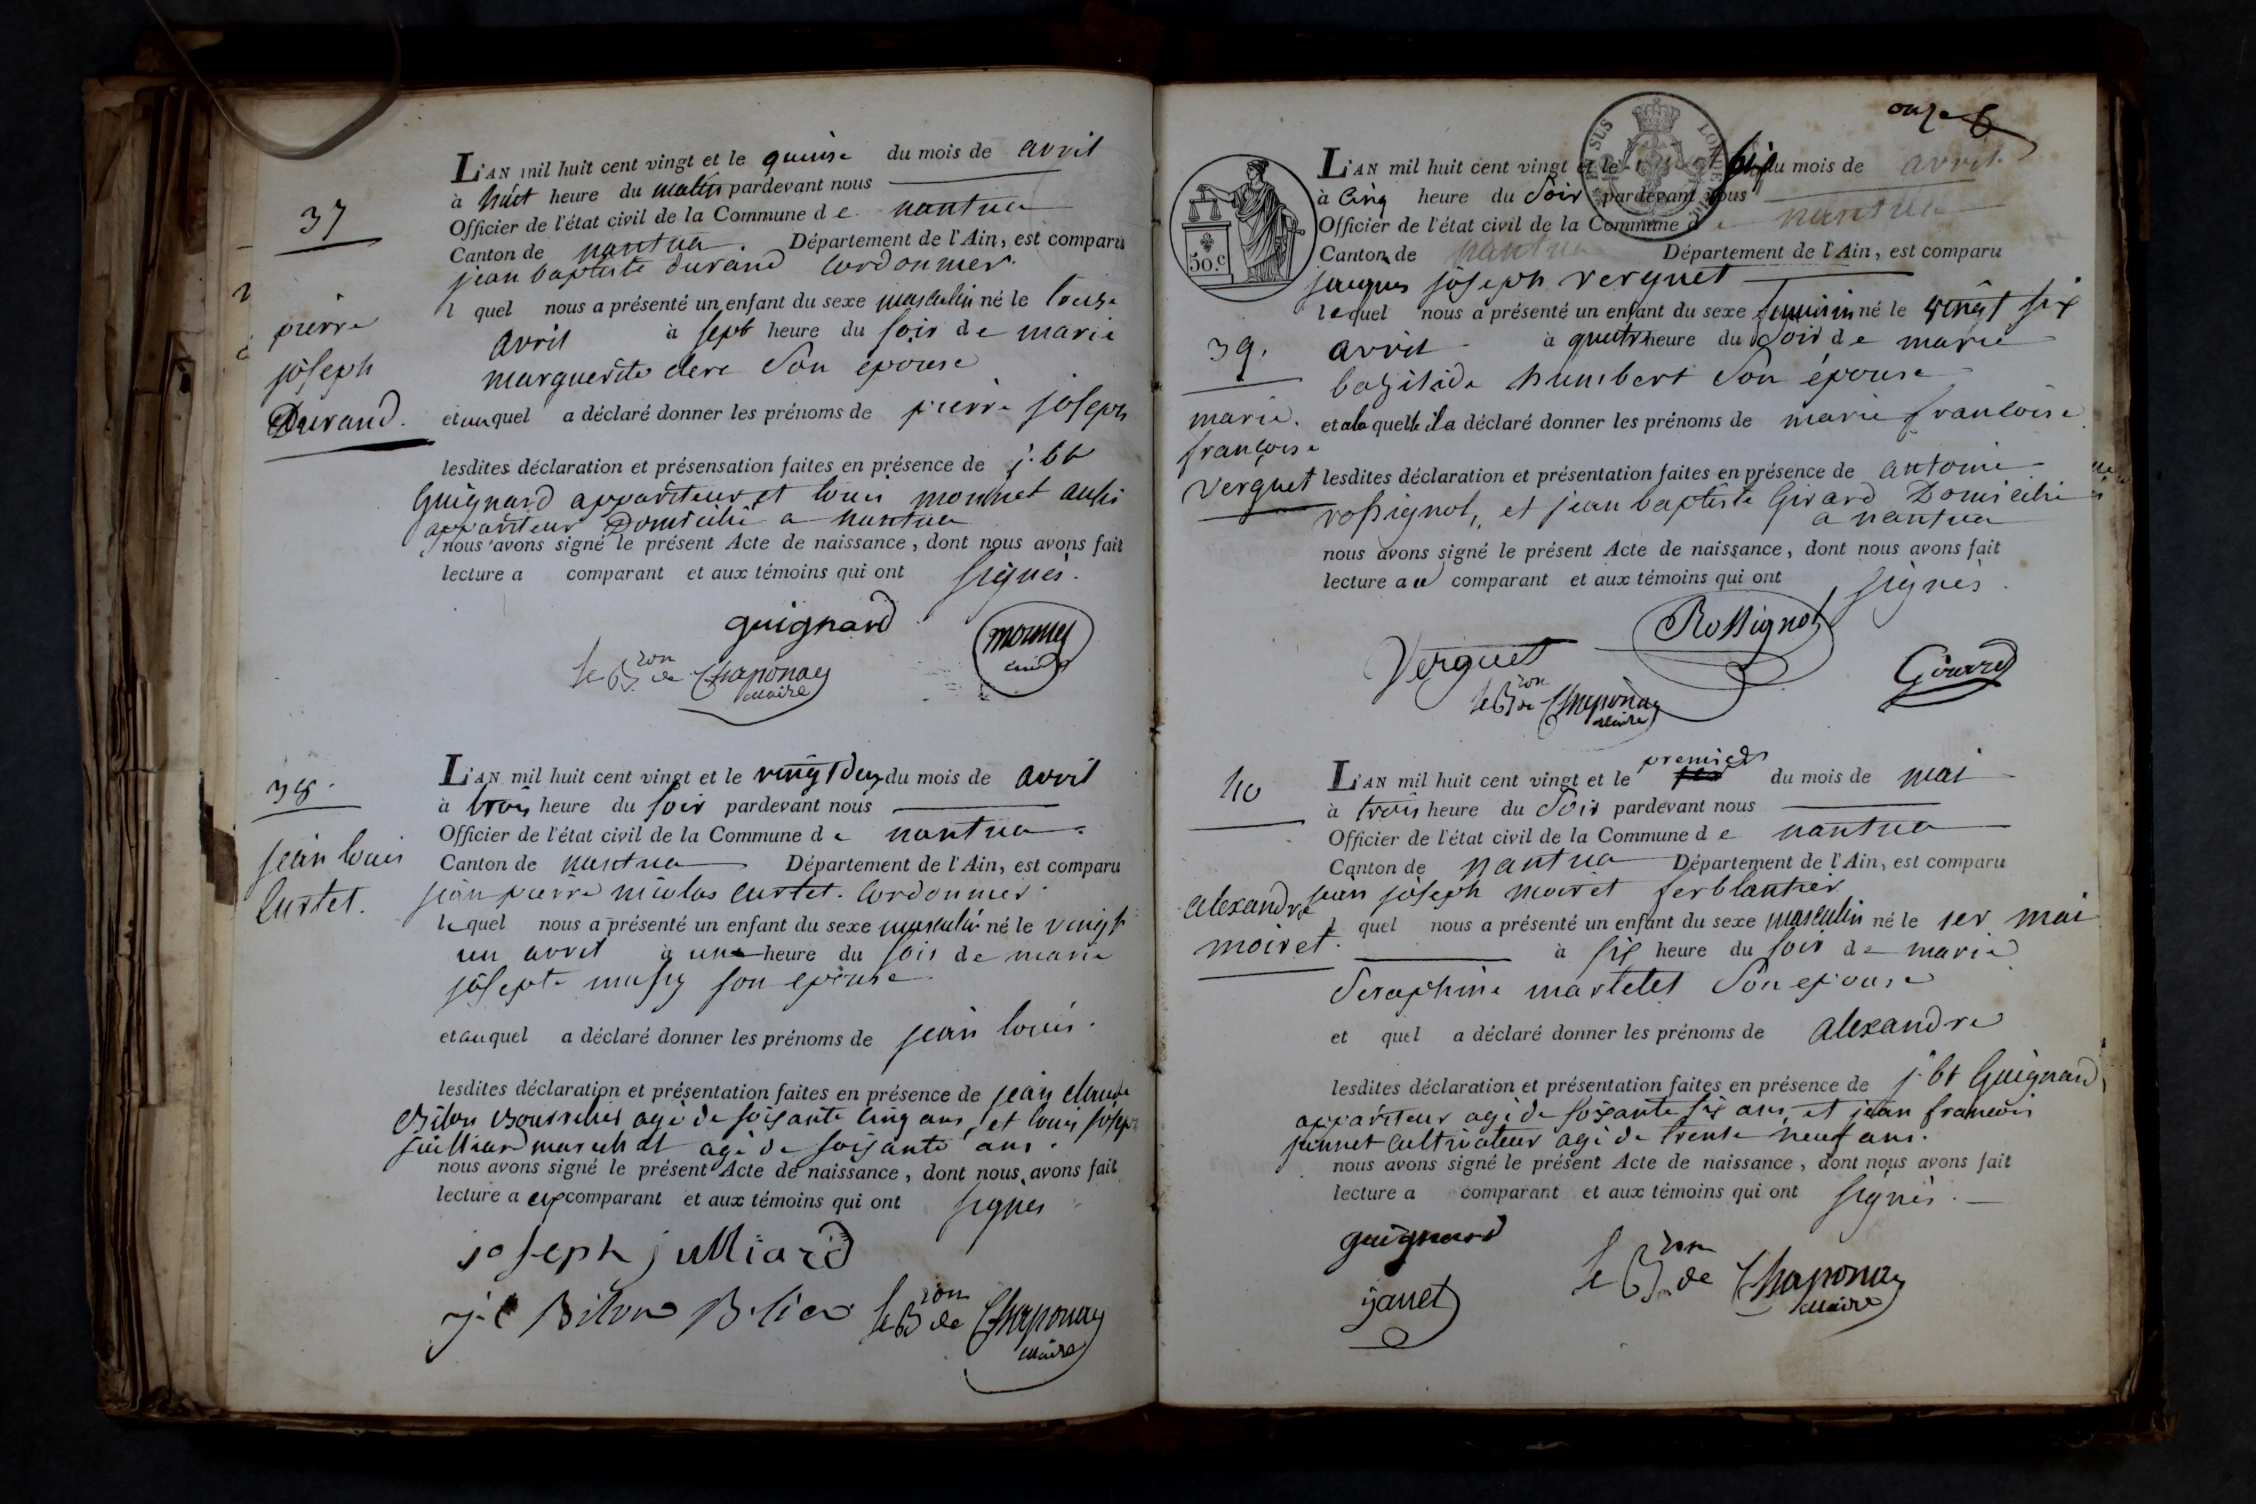 37
pierre
joseph
Durand.
L'AN mil huit cent vingt et le quinse du mois de avril
à huit heure du matin pardevant nous
Officier de l'état civil de la Commune d e nantua
Canton de nantua. Département de l'Ain, est comparu
jean baptiste durand Cordonnier.
l quel nous a présenté un enfant du sexe masculin né le treise
avril à sept heure du soir de marie
marguerite clerc son épouse
et au quel a déclaré donner les prénoms de pierre joseph
lesdites déclaration et présensation faites en présence de j. bt
Guignard appariteur et louis monnet aussi
appariteur Domicilié a nantua
nous avons signé le présent Acte de naissance, dont nous avons fait
lecture a comparant et aux témoins qui ont signés.
guignard
monnet
le B.ron de Chaponay
Maire
38.
jean louis
Curtet.
L'AN mil huit cent vingt et le vingt deux du mois de avril
à trois heure du soir pardevant nous
Officier de l'état civil de la Commune d e nantua.
Canton de nantua Département de l'Ain, est comparu
jean pierre nicolas curtet. Cordonnier.
le quel nous a présenté un enfant du sexe masculin né le vingt
un avril à une heure du soir de marie
josepte son épouse
et au quel a déclaré donner les prénoms de jean louis.
lesdites déclaration et présentation faites en présence de jean claude
Bilon agé de soixante cinq ans, et louis joseph
juilliard marechal agé de soixante ans.
nous avons signé le présent Acte de naissance, dont nous avons fait
lecture a ux comparant et aux témoins qui ont signes
joseph julliard
j. C Bilon
le B.ron de Chaponay
Maire
onze
50.c
39.
marie.
françoise
Verguet
L'AN mil huit cent vingt et le six du mois de avril.
à Cinq heure du Soir pardevant nous
Officier de l'état civil de la Commune d e nantua
Canton de nantua Département de l'Ain, est comparu
jacques joseph verguet
le quel nous a présenté un enfant du sexe feminin né le vingt six
avril à quatre heure du Soir d e marie
bazilide humbert Son épouse
et a la quelle il a déclaré donner les prénoms de marie francoise
lesdites déclaration et présentation faites en présence de antoine
rossignol, et jean baptiste Girard Domicilié
a nantua
nous avons signé le présent Acte de naissance, dont nous avons fait
lecture a u comparant et aux témoins qui ont signés.
Rossignol
Verguet
Girard
le B.ron de Chaponay
Maire
40
alexandre
moiret.
premier
L'AN mil huit cent vingt et le du mois de mai
à trois heure du Soir pardevant nous
Officier de l'état civil de la Commune d e nantua
Canton de nantua Département de l'Ain, est comparu
jean joseph moiret ferblantier
l quel nous a présenté un enfant du sexe masculin né le 1er mai
à six heure du soir de marie
Seraphine martelet Son epouse
et quel a déclaré donner les prénoms de alexandre
lesdites déclaration et présentation faites en présence de j. bt Guignard
appariteur agé de soixante six ans, et jean francois
jannet Cultivateur agé de trente neuf ans.
nous avons signé le présent Acte de naissance, dont nous avons fait
lecture a comparant et aux témoins qui ont signés.
guignard
janet
le B.ron de Chaponay
Maire